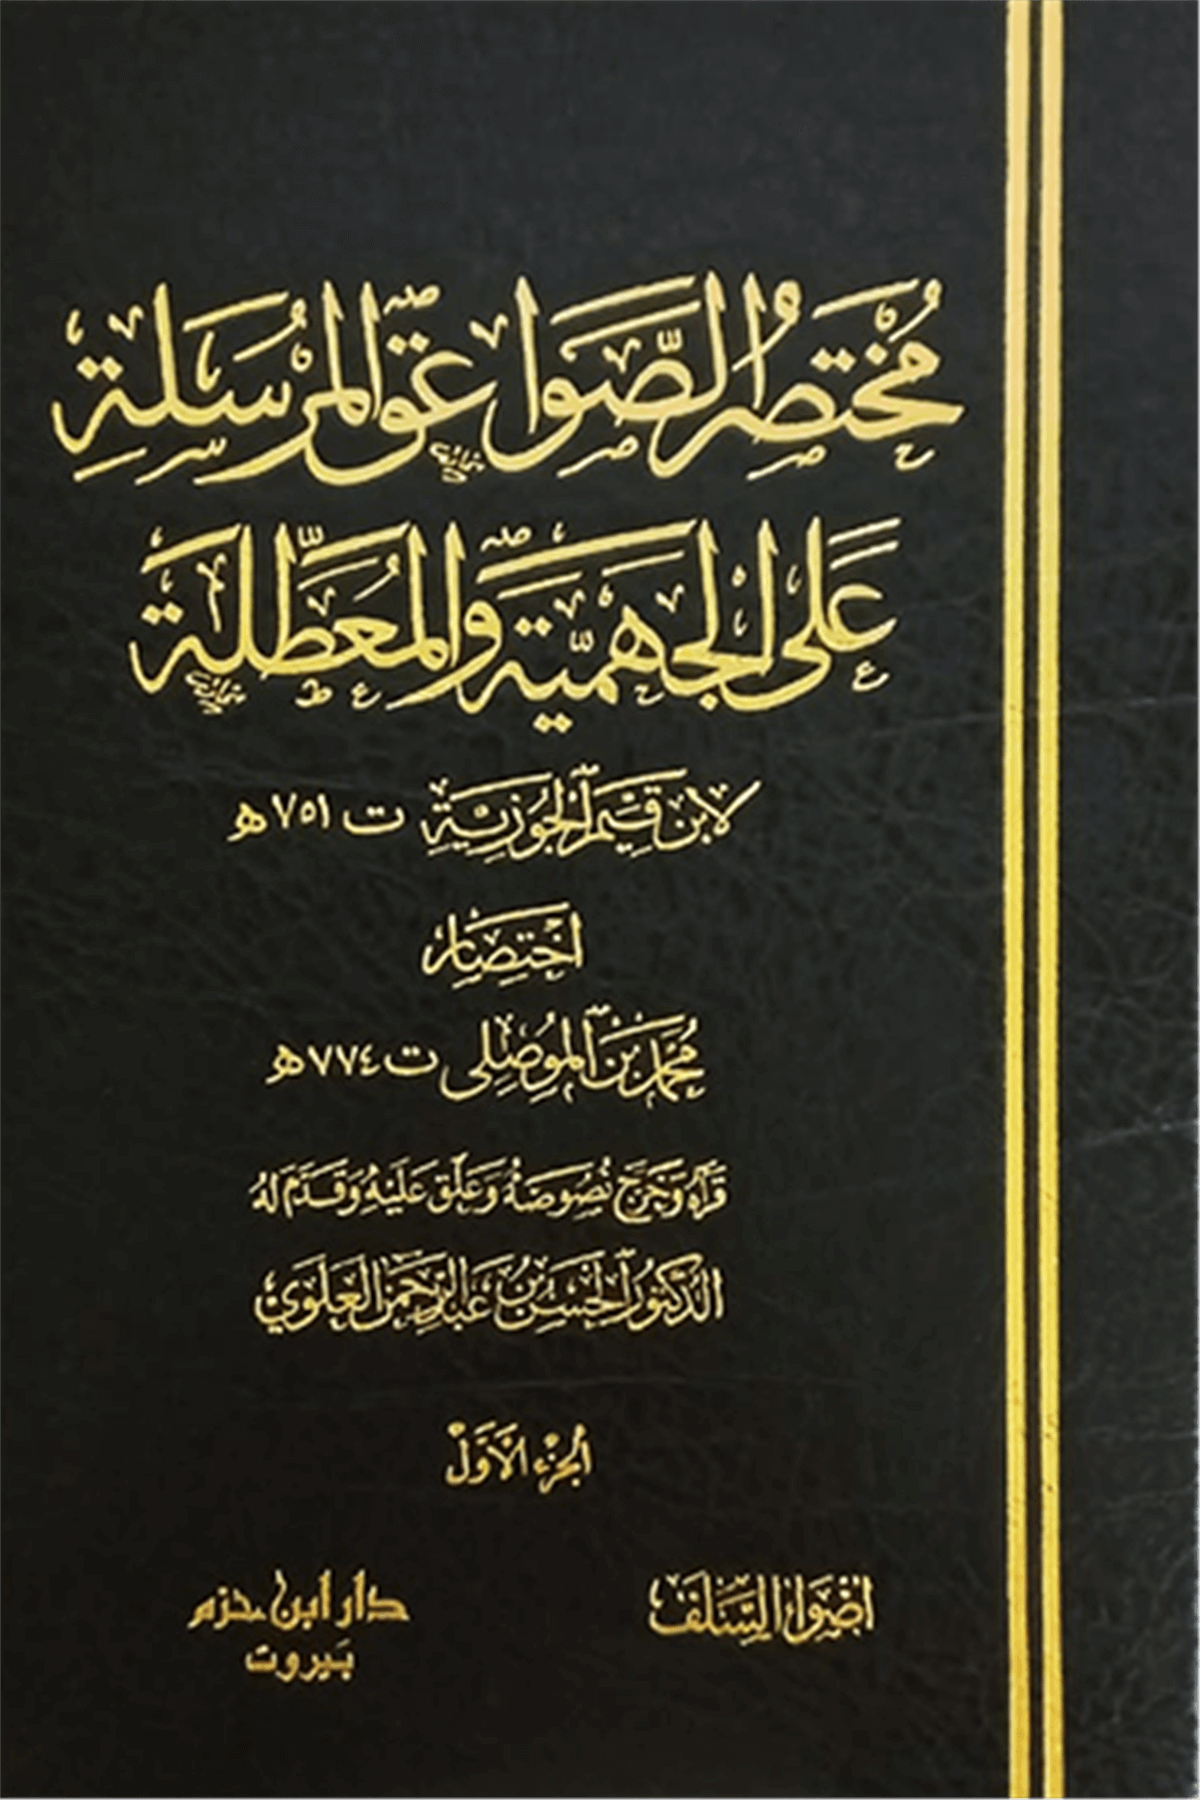 مُختصرُ الصَّواعقِ المرسَلةِ
عَلى الجَهميَّةِ والمُعَطِّلَة
لابن قيِّم الجَوزيَّةِ ت ٧٥١ هـ
اختِصَار
مُحَمَّد بن المَوصِلي ت ٧٧٤ هـ
قَرَأَهُ وَخَرَّجَ نُصُوصَهُ وَعَلَّقَ عَلَيْهِ وَقَدَّمَ لَهُ
الدكتورُ الحَسَن بن عَبد الرَّحمن العَلَوي
الجزء الأوَّل
أضواء السَّلَف
دار ابن حزم
بَيروت